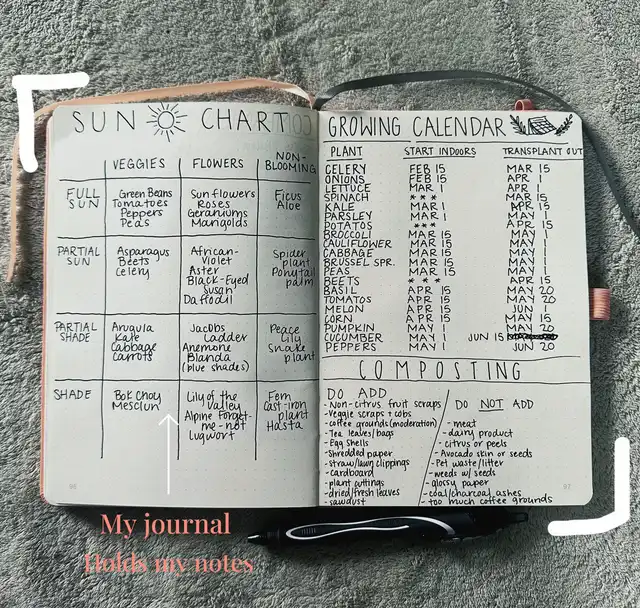 SUN CHART
VEGGIES FLOWERS NON-BLOOMING
FULL SUN
Green Beans
Tomatoes
Peppers
Peas
Sunflowers
Roses
Geraniums
Marigolds
Ficus
Aloe
PARTIAL SUN
Asparagus
Beets
Celery
African-
violet
Aster
Black-Eyed
Susan
Daffodil
Spider
plant
Ponytail
palm
PARTIAL SHADE
Arugula
Kale
Cabbage
Carrots
Jacobs
Ladder
Anemone
Blanda
(blue shades)
Peace
Lily
Snake
plant
SHADE
Bok Choy
Mesclun
Lily of the
Valley
Alpine Forget-
me-not
Lugwort
Fern
Cast-iron
plant
Hasta
96
GROWING CALENDAR
PLANT START INDOORS TRANSPLANT OUT
CELERY FEB 15 MAR 15
ONIONS FEB 15 APR 1
LETTUCE MAR 1 APR 1
SPINACH *** MAR 15
KALE MAR 1 APR 15
PARSLEY MAR 1 MAY 1
POTATOS *** APR 15
BROCCOLI MAR 15 MAY 1
CAULIFLOWER MAR 15 MAY 1
CABBAGE MAR 15 MAY 1
BRUSSEL SPR. MAR 15 MAY 1
PEAS MAR 15 MAY 1
BEETS *** APR 15
BASIL APR 15 MAY 20
TOMATOS APR 15 MAY 20
MELON APR 15 JUN 1
CORN APR 15 MAY 15
PUMPKIN MAY 1 MAY 20
CUCUMBER MAY 1 JUN 15
PEPPERS MAY 1 JUN 20
COMPOSTING
DO ADD
-Non-citrus fruit scraps
-Veggie scraps + cobs
-coffee grounds (moderation)
-Tea leaves/bags
-Egg shells
-Shredded paper
-straw/lawn clippings
-cardboard
-plant cuttings
-dried/fresh leaves
-sawdust
DO NOT ADD
-meat
-dairy product
-citrus or peels
-Avocado skin or seeds
-Pet waste/litter
-weeds w/ seeds
-glossy paper
-coal/charcoal ashes
-too much coffee grounds
97
My journal
Holds my notes